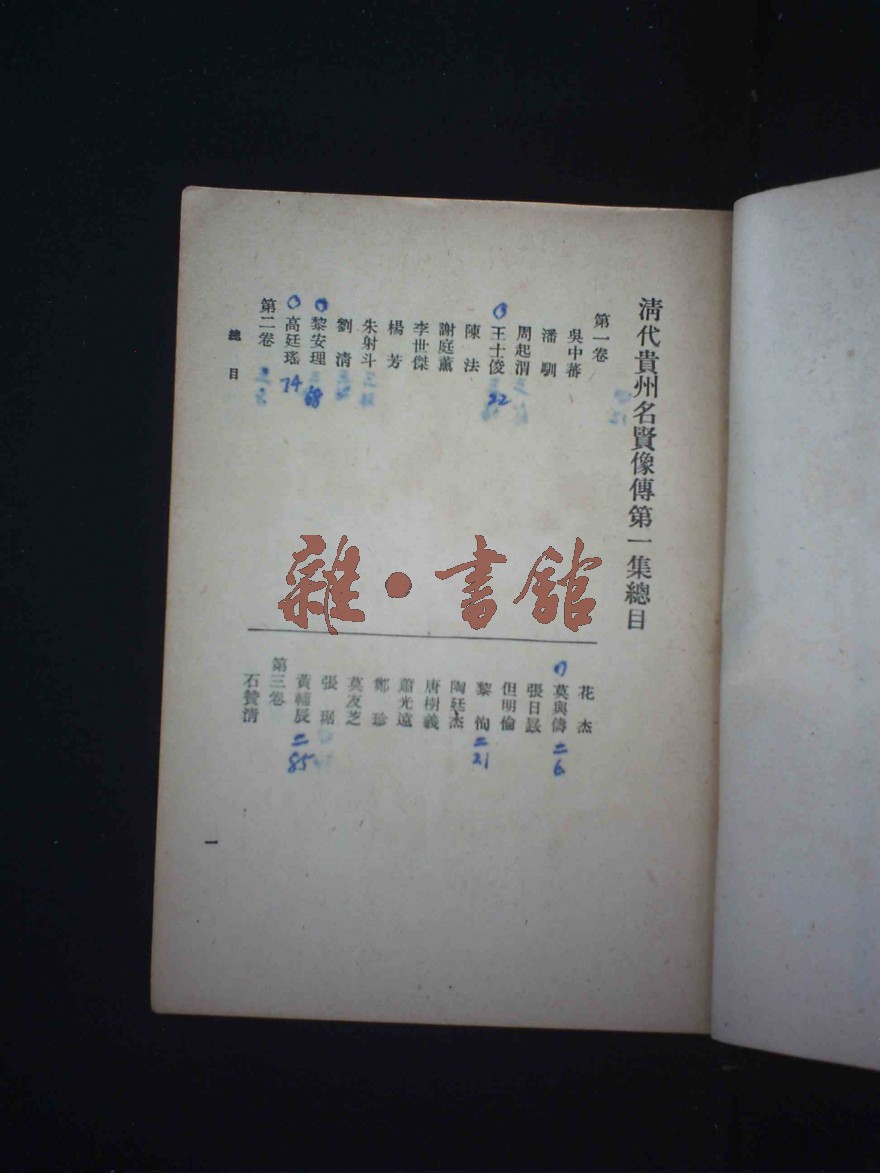 清代貴州名賢像傳第一集總目
第一卷
吳中蕃
潘馴
周起渭
王士俊 22
陳法
謝庭薰
李世傑
楊芳
朱射斗
劉清
黎安理 68
高廷瑤 74
第二卷
花杰
莫與儔 二6
張日晸
但明倫
黎恂 二21
陶廷杰
唐樹義
蕭光遠
鄭珍
莫友芝
張琚
黃輔辰 二85
第三卷
石贊清
總目
一
雜·書館